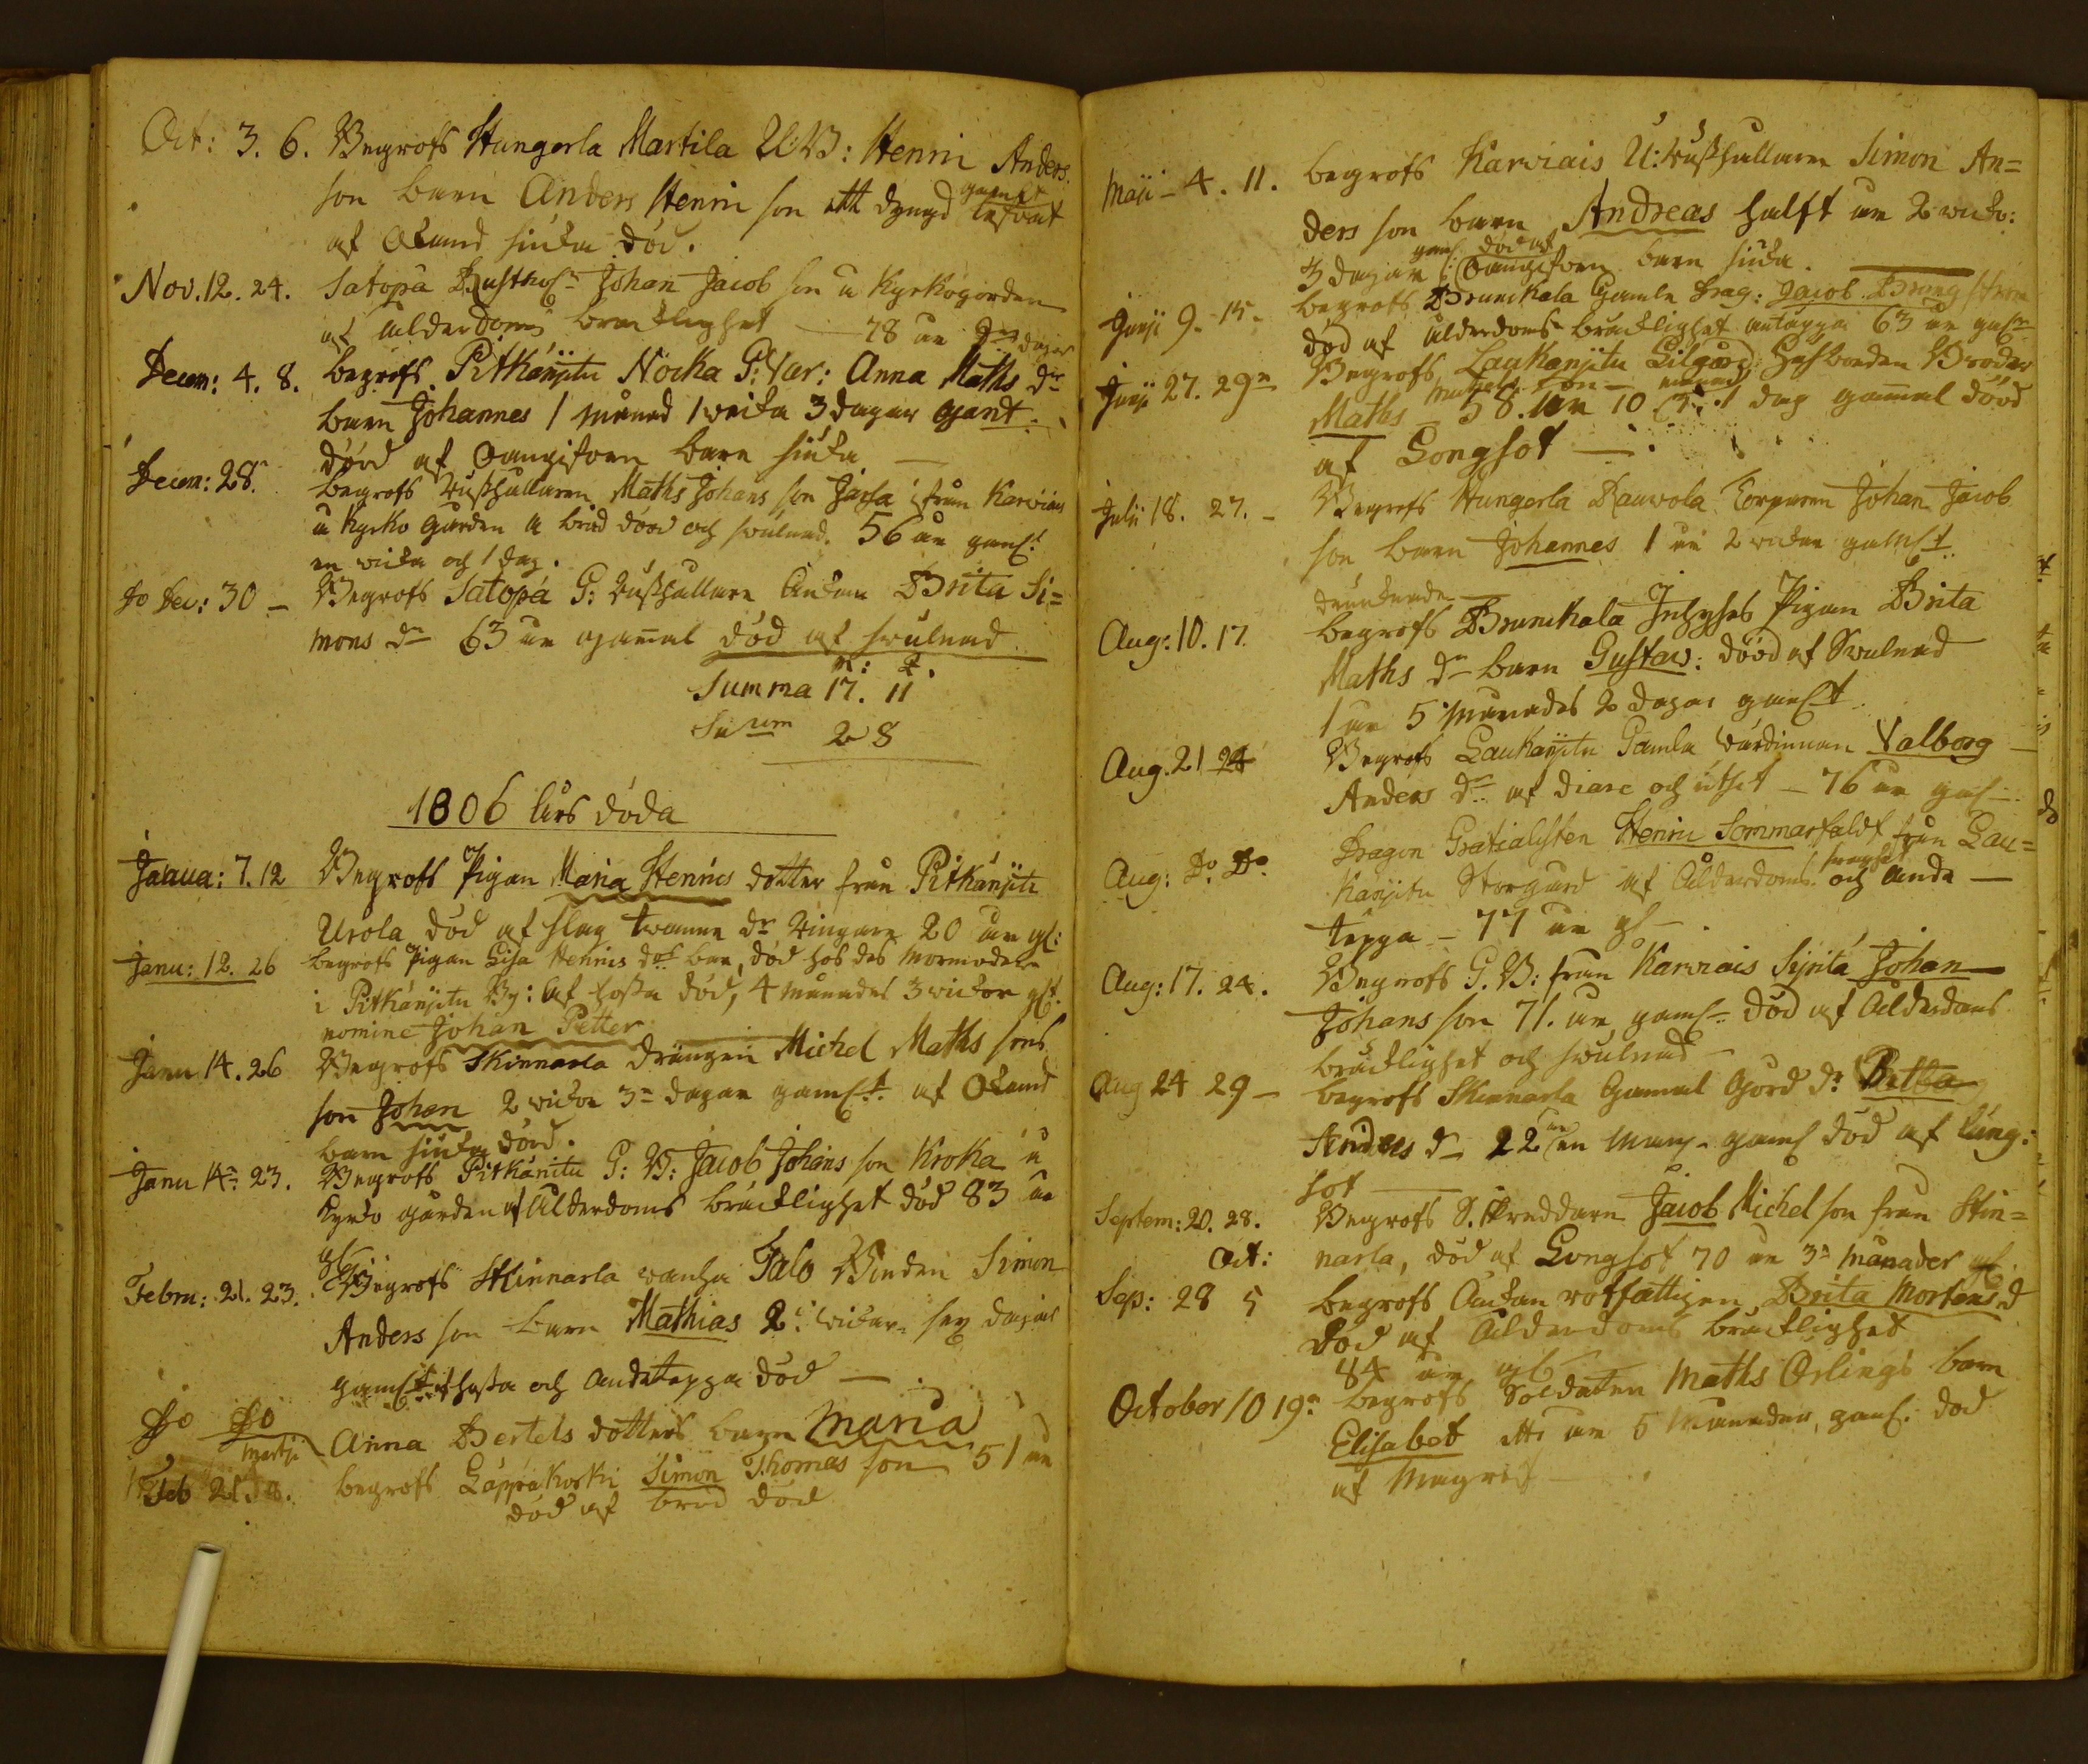 Oct: 3. 6. Begrofs Hungerla Martila U:B: Henric Anders
son barn Anders Henric son ett dyngd gamt
af Okand siuka död.
Nov. 12. 24. Satopä Rusthol: Johan Jacob son a Kyrkogorden
af ålderdoms bräcklighet 78 år dagar
Decem: 4. 8. begrofs Pitkänjtu Nocka P: Anna Maths dr
barn Johannes 1 månad 1 vecka 3 dagar gamt
dööd af Oangifven barn siuka
Decem: 28. begrofs Rusthållaren Maths Johans son Jaṙla från Karviais
a Kyrko Gården a bråd dööd och svulnad. 56 år gaml:
en vecka och 1 dag.
Do Dec: 30 Begrofs Satopä G: Rusthållare Enkan Brita Si=
mons dr 63 år gammal död af svulnad
Summa 17. 11
28
1806 års döda
Janua: 7. 12 Begrofs Pigan Maria Henrics dotter från Pitkänjtu
Urola död af slag 20 år gl:
Janu: 12. 26 begrofs Pigan Lisa Henrics drs barn, död hos des Mormoder
i Pitkänjtu By: af hosta död, 4 månader 3 veckor glt.
nomine Johan Petter
Janu 14. 26 Begrofs Skinnarla drängen Michel Maths sons
son Johan 2 veckor 3 dagar gamlt. af Okand
barn siuka dööd.
Janu 14. 23. Begrofs Pitkänitu G: B: Jacob Johans son Kroka a
Kyrko gården af Ålderdoms bräcklighet död 83 år
gl
Febru: 21. 23. Begrofs Skinnarla vanha Talo Bonden Simon
Anders son barn Mathias 2 veckor sex dagar
gamlt af hosta och andetäppa död
Do Do Anna Bertels dotters barn Maria
Martji
Feb 21 begrofs Läppäkoski Simon Thomas son 51 år
död af bråd död
Maji 4. 11. begrofs Karviais U: Rusthållaren Simon An=
ders son barn Andreas halft år 2 vecko:
3 dagar gaml: död af Oangifven barn siuka.
Junji 9. 15. begrofs Brunckala Gamle Drag: Jacob Brung
död af ålderdoms bräcklighet antäppa 63 år
Junji 27. 29 Begrofs Laukänjtu Lilgård Husbonden Broder
Maths Michels son 58. år 10 månad 1 dag gammal dööd
af Longsot
Julii 18. 27. Begrofs Hungerla Rauvola Torparen Johan Jacob
son barn Johannes 1 år 2 veckor gamlt.
drunknade
Aug: 10. 17. begrofs Brunckala Inhyses Pigan Brita
Maths dr barn Gustav: dööd af Svulnad
1 år 5 Månader 2 dagar gamlt.
Aug. 21 24 Begrofs Laukänjtu Gamla Värdinnan Valborg
Anders dr af diare och utset 76 år gl
Aug: Do. Do. Dragon Gratialisten Henric Sommarfaldt från Lau=
känjtu Storgård af Ålderdoms svaghet och ande
täppa 77 år gl
Aug: 17. 24. Begrofs G. B: från Karviais Sijritä Johan
Johans son 71. år gaml: död af Ålderdoms
bräcklighet och svulnad
Aug 24 29 begrofs Skinnarla Gammal Gjord dr Britta
Anders dr 22 år gaml död af lung:
sot
Septem: 20. 28. Begrofs S. skreddaren Jacob Michel son från Skin=
Oct: narla, död af Longsot 70 år 3 månader gl
Sep: 28 5 begrofs Enkan rotfattigen Brita Mortens d
död af Ålderdoms bräcklighet
84 år gl
October 10 19 begrofs Soldaten Maths Ørlings barn
Elisabet ett år 5 Månader, gaml. död
af Magris